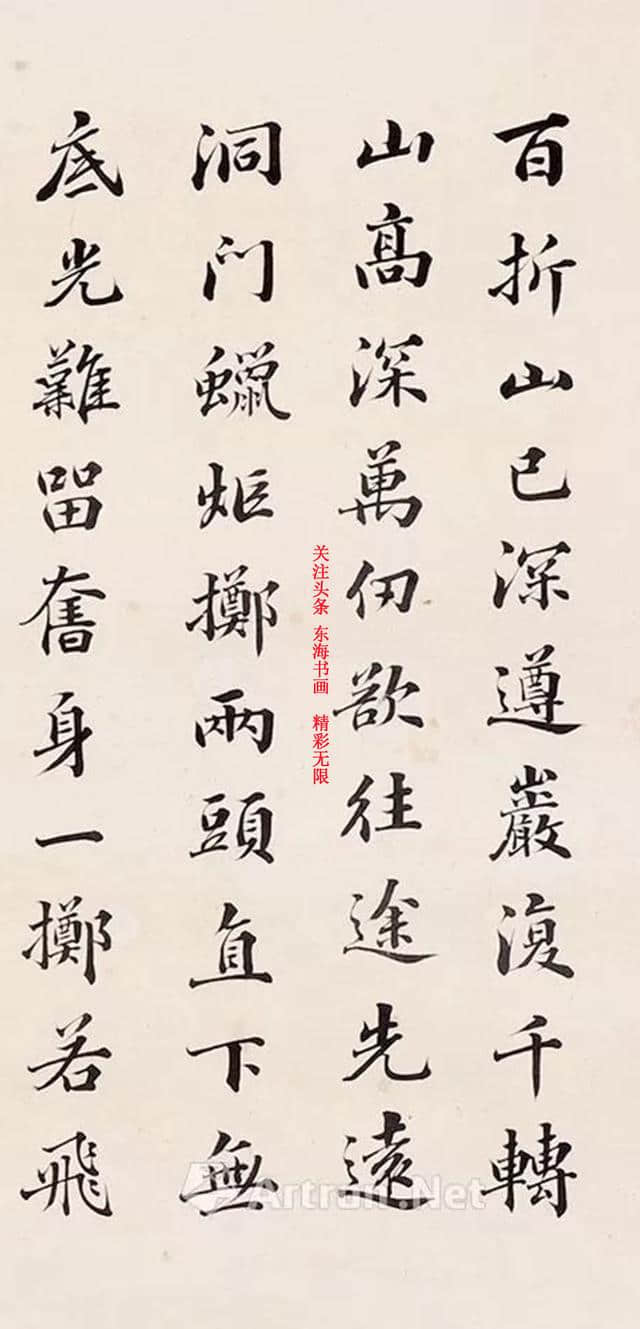 百折山已深遵巖復千轉
山高深萬仞欲往途先遠
洞门蠟炬擲兩頭直下無
底光難留奮身一擲若飛
关注头条 东海书画 精彩无限
Artron.Net